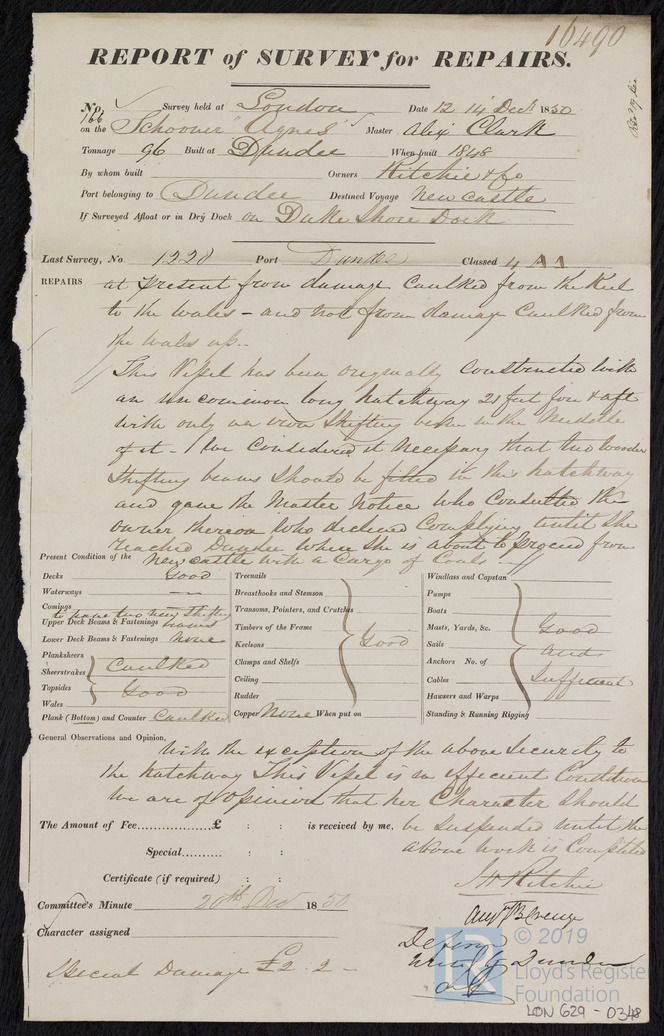 16490
REPORT of SURVEY for REPAIRS.
No. 166 Survey held at London Date 12 14 Decr 1850
on the Schooner "Agnes" Master Alex Clark
Tonnage 96 Built at Dundee When built 1848
By whom built Owners Ritchie & Co
Port belonging to Dundee Destined Voyage Newcastle
If Surveyed Afloat or in Dry Dock on Duke Shore Dock
Last Survey, No. 1228 Port Dundee Classed 4 A 1
REPAIRS at present from damage Caulked from the Keel
to the wales - and not from damage Caulked from
the wales up.
This Vessel has been originally Constructed with
an uncommon long hatchway 21 feet fore & aft
with only an iron Shifting beam in the Middle
of it - I have Considered it necessary that two wooden
Shifting beams should be fitted in this hatchway
and gave the Master Notice who Consulted the
owner thereon who declined Complying until she
reached Dundee when she is about to proceed from
Newcastle with a Cargo of Coals.
Present Condition of the
Decks Good
Waterways
Comings
to have two new Shifting
Upper Deck Beams & Fastenings beams
Lower Deck Beams & Fastenings None
Planksheers
Sheerstrakes Caulked
Topsides Good
Wales
Plank (Bottom) and Counter Caulked
Treenails
Breasthooks and Stemson
Transoms, Pointers, and Crutches
Timbers of the Frame
Keelsons Good
Clamps and Shelfs
Ceiling
Rudder
Copper None When put on
Windlass and Capstan
Pumps
Boats
Masts, Yards, &c. Good
Sails and
Anchors No. of
Cables Sufficient
Hawsers and Warps
Standing & Running Rigging
General Observations and Opinion,
With the exception of the above Security to
the hatchway This Vessel is in efficient Condition
We are of Opinion that her Character should
be Suspended until the
above work is Completed
The Amount of Fee £ : : is received by me,
Special : :
Certificate (if required) : :
Committee's Minute 20th Decr 1850
Character assigned
Special Damage £2.2-
© 2019
Lloyd's Register
Foundation
LON 629 - 0348